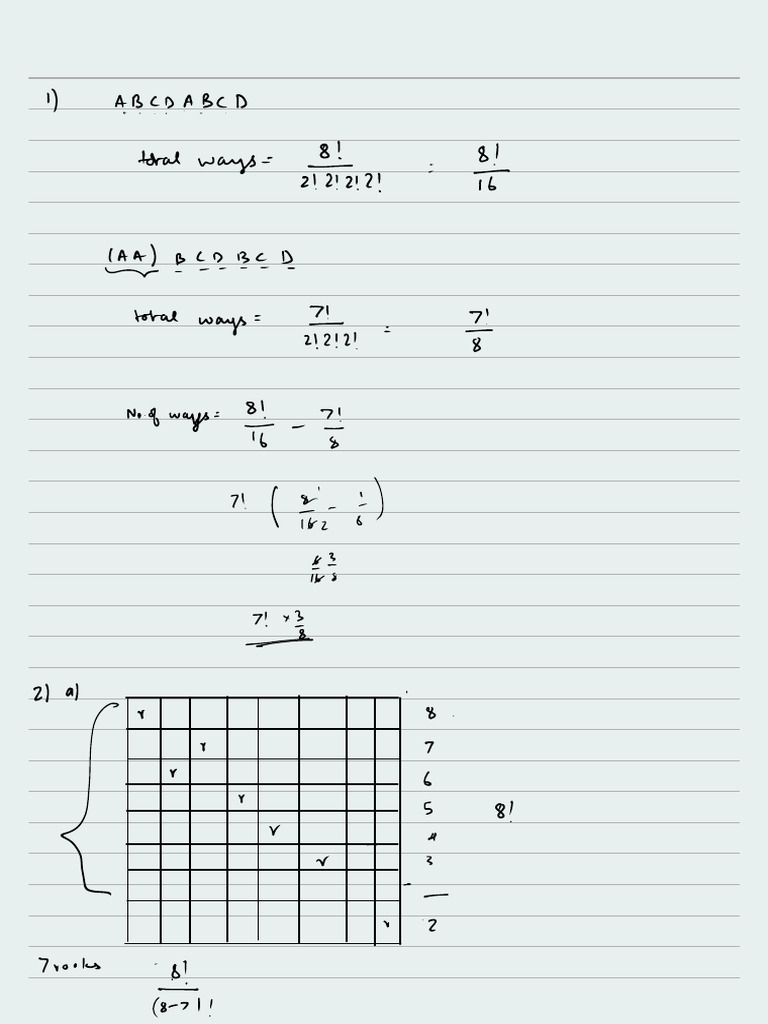 1) A B C D A B C D
total ways = 8! / 2! 2! 2! 2! = 8! / 16
(AA) B C D B C D
total ways = 7! / 2! 2! 2! = 7! / 8
No. of ways = 8! / 16 - 7! / 8
7! ( 8 1 / 16 2 - 1 / 8 )
6 3 / 16 8
7! × 3 / 8
2) a)
r 8
r 7
r 6
r 5 8!
r 4
r 3
—
r 2
7 rooks 8! / (8-7)!